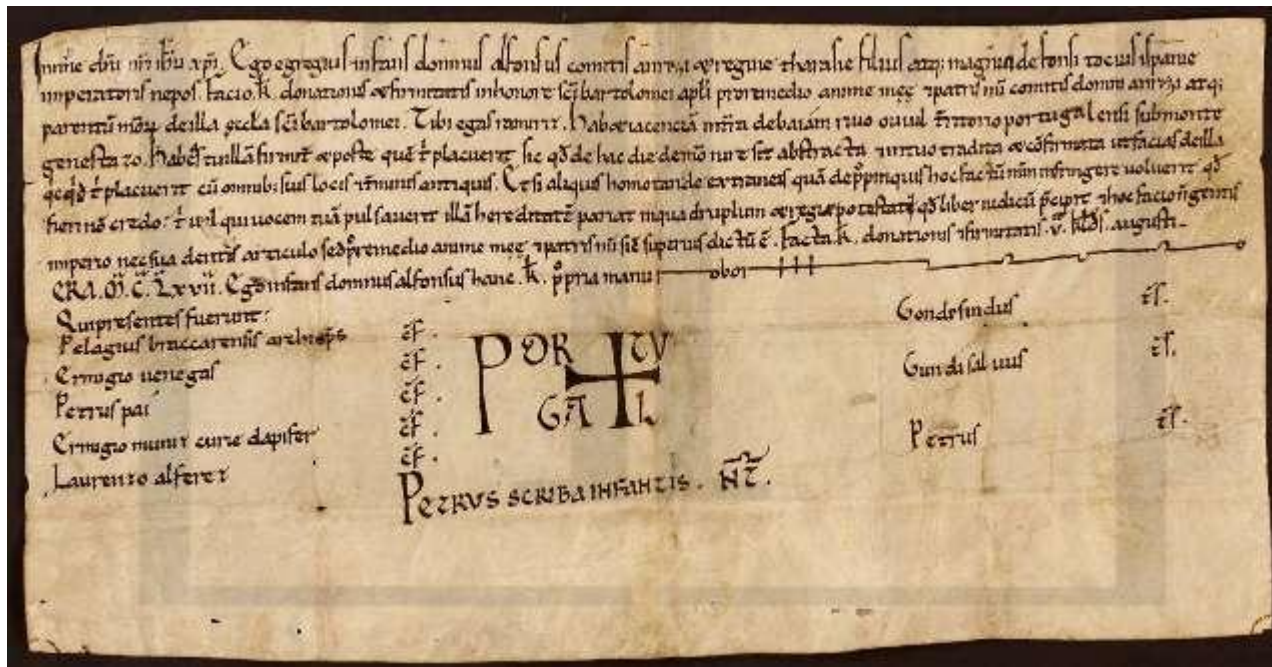 In nñe dñi nr̃i ih̃u xp̃i. Ego egregius infans domnus alfonsus comitis anrrici & regine tharasie filius atq; magni adefonsi tocius ispanie
imperatoris nepos. facio. k̃. donationis & firmitatis in honore sc̃i bartolomei apl̃i pro remedio anime meę ⁊ patris mei comitis domni anrrici atq;
parentũ de illa eccl̃a sc̃i bartolomei. Tibi egas ramiriz. Habet iacenciã in uilla de baiam riuo ouil territorio portugalensi sub monte
genestazo. Habeas tu illã firmit̃ & post te que t̃ placuerit sic qd̃ de hac die de meo iure sit abstracta ⁊ in tuo tradita & cõfirmata ut facias de illa
t̃ placuerit cũ omnib; suis locis ⁊ t̃minis antiquis. Et si aliquis homo tan de extraneis quã de p̃pinquis hoc factũ infringere uoluerit qd̃
fieri nõ credo: t̃ uocem tuã pulsauerit illã hereditatẽ pariat in quadruplum & regie potestati qd̃ liber iudicũ p̃cipit ⁊ hoc facio gentis
imperio nec suadentis articulo sed p̃ remedio anime meę ⁊ patris mei sic̃ superius dictũ ẽ. facta. k̃. donationis ⁊ firmitatis. v̊. kl̃ds. augusti.
ERA. M̃. C̃. Lxvii. Ego infans domnus alfonsus hanc. k̃. p̃pria manu roboro
Qui presentes fuerunt:
Pelagius braccarensis archiep̃s t̃s.
Ermigio uenegas t̃s.
Petrus pai t̃s.
Ermigio muniz curie dapifer t̃s.
Laurenzo alferez t̃s.
PORTUGAL
PETRUS SCRIBA INFANTIS. N̄T̃.
Gondesindus t̃s.
Gundisaluus t̃s.
Petrus t̃s.